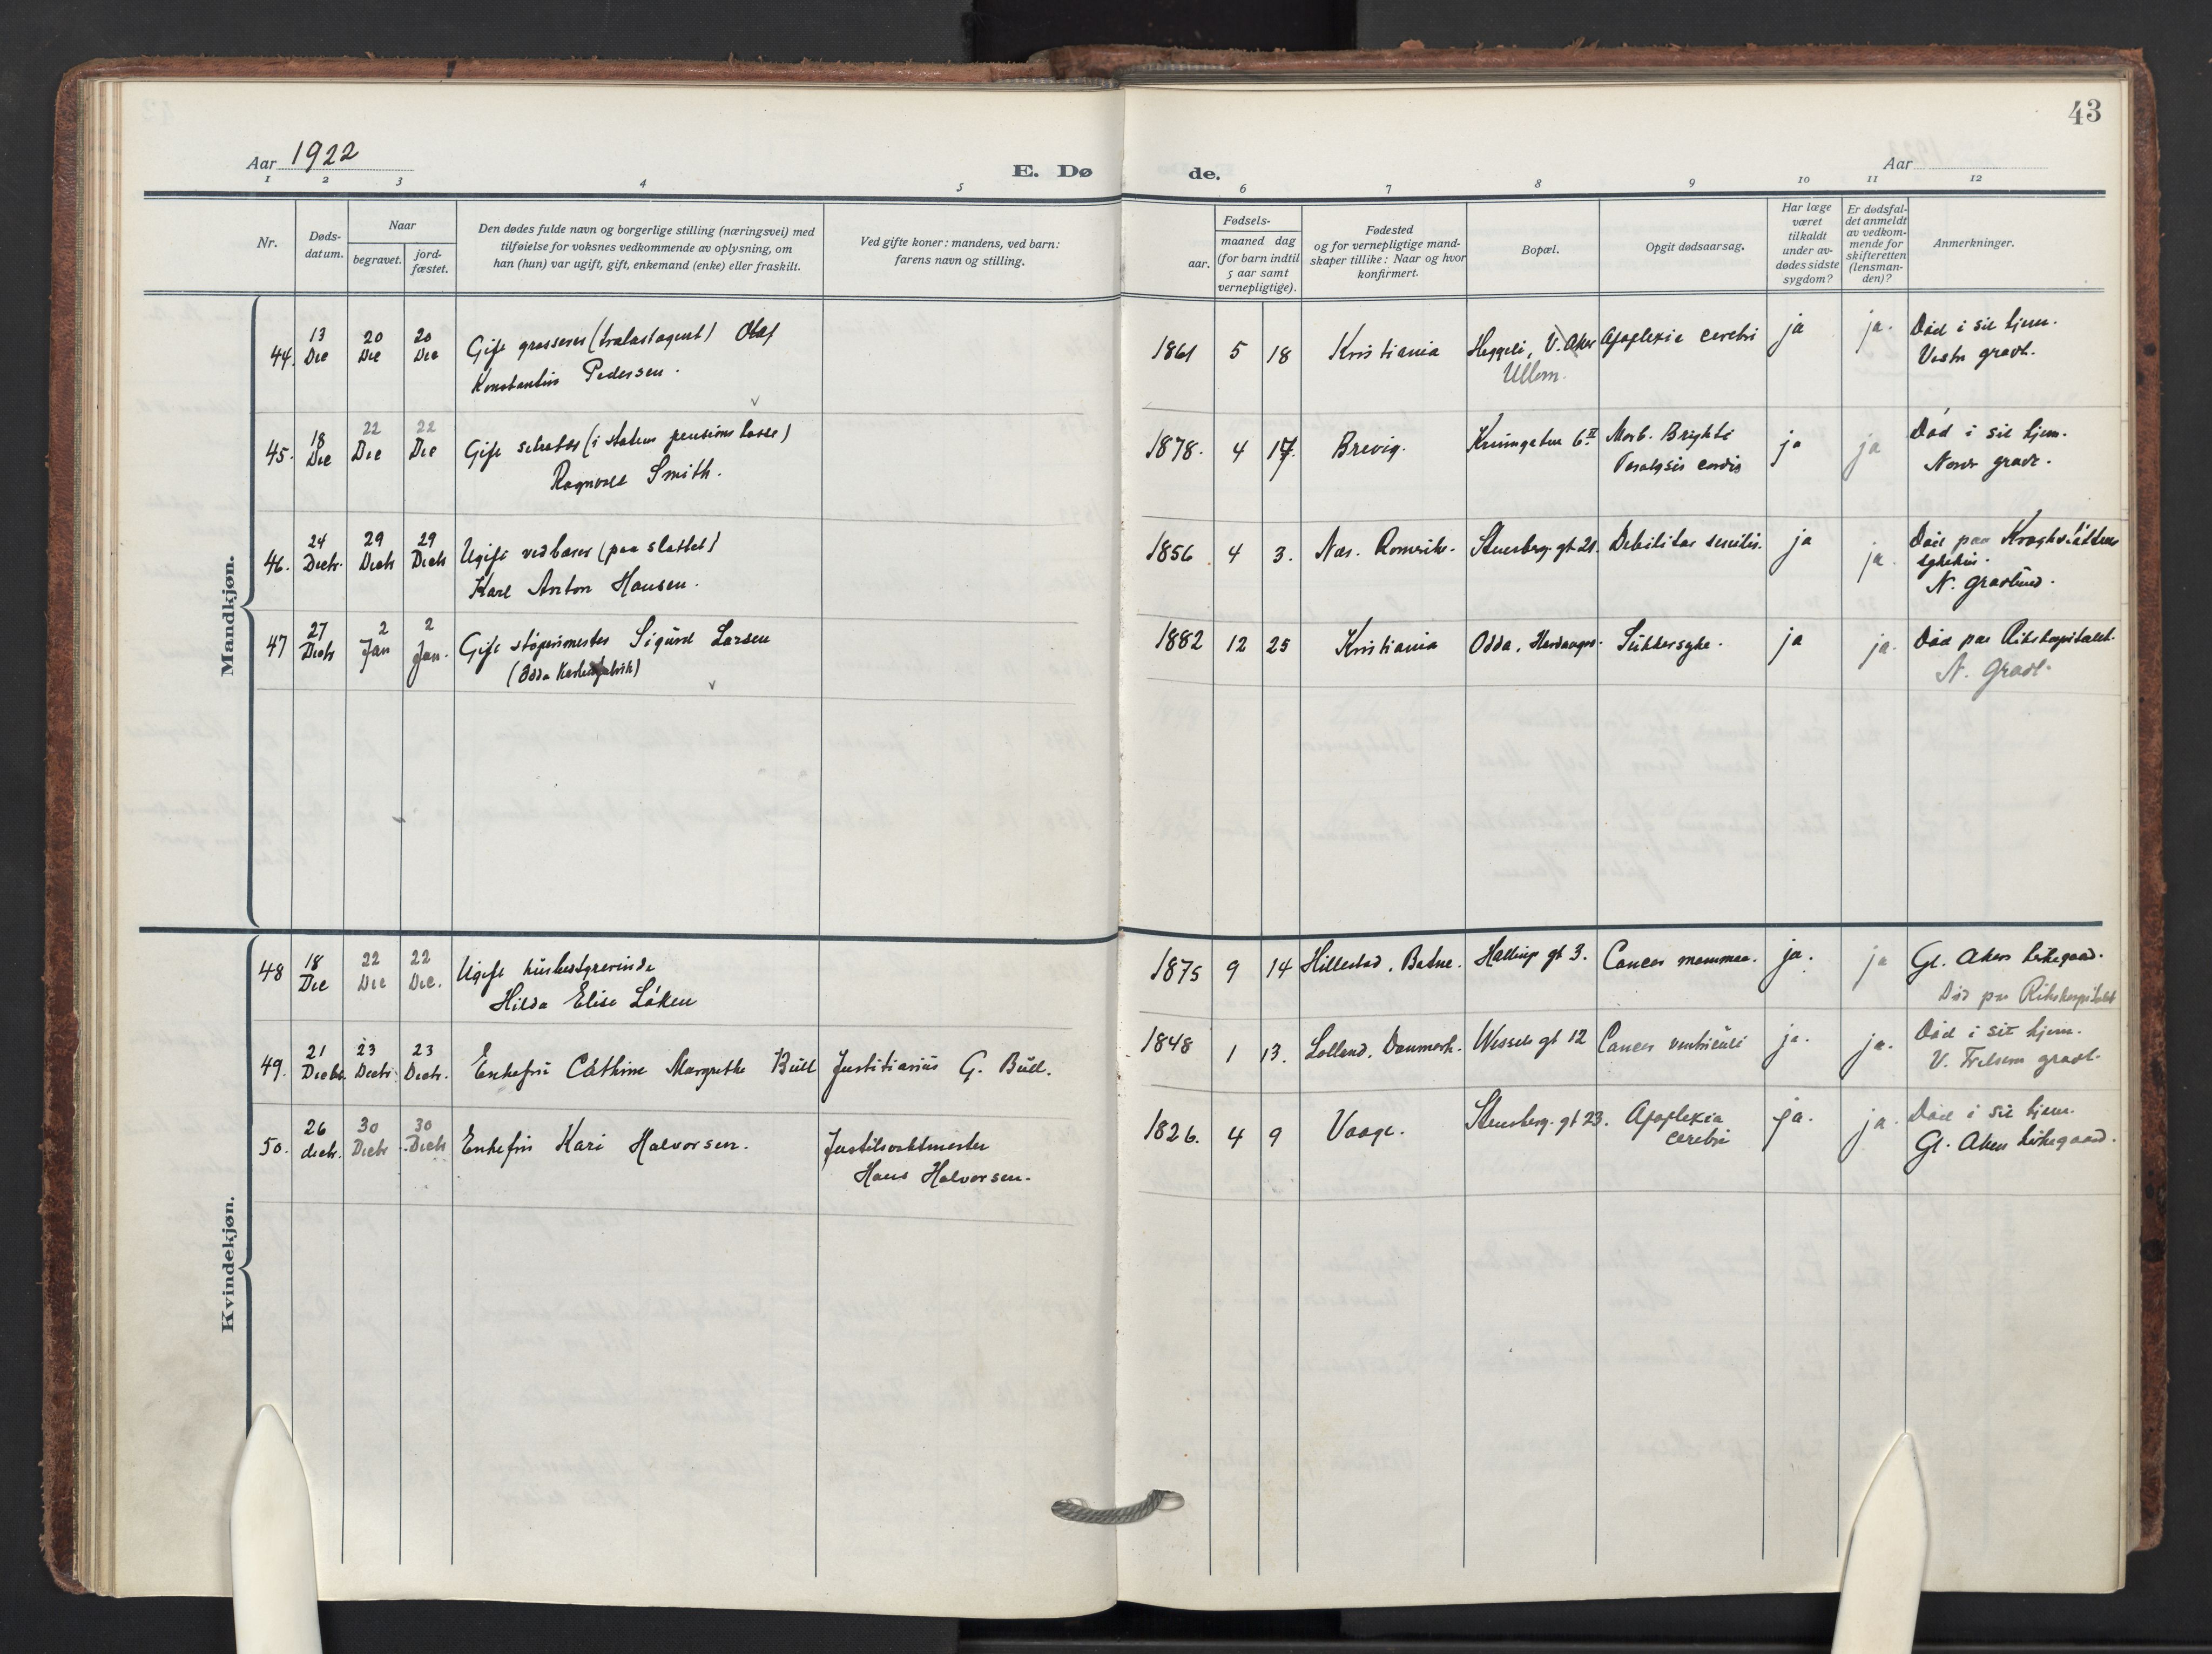 43
Aar 1922
E. Dø de.
Aar
1 2 3 4 5 6 7 8 9 10 11 12
Nr.
Døds-
datum.
Naar
begravet.
jord-
fæstet.
Den dødes fulde navn og borgerlige stilling (næringsvei) med
tilføielse for voksnes vedkommende av oplysning, om
han (hun) var ugift, gift, enkemand (enke) eller fraskilt.
Ved gifte koner: mandens, ved barn:
farens navn og stilling.
Fødsels-
aar.
maaned dag
(for barn indtil
5 aar samt
vernepligtige).
Fødested
og for vernepligtige mand-
skaper tillike: Naar og hvor
konfirmert.
Bopæl.
Opgit dødsaarsag.
Har læge
været
tilkaldt
under av-
dødes sidste
sygdom?
Er dødsfal-
det anmeldt
av vedkom-
mende for
skifteretten
(lensman-
den)?
Anmerkninger.
Mandkjøn.
44. 13 Dec 20 Dec 20 Dec Gift grosserer (trælastagent) Olaf
Konstantin Pedersen.
1861 5 18 Kristiania Heggeli, V. Aker Apoplexia cerebri ja ja. Død i sit hjem.
Ullern. Vestr gravl.
45. 18 Dec 22 Dec 22 Dec Gift sekretær (i statens pensions kasse)
Ragnvald Smith.
1878. 4 17. Brevig. 6 II Morb. Brighti ja ja Død i sit hjem.
Paralysis cordis Nordr gravl.
46. 24 Decbr. 29 Decbr 29 Decbr Ugift vedbærer (paa slottet)
Karl Anton Hansen.
1856 4 3. Nes. Romerike. Stensberg. gt 21. Debilitas senilis. ja ja. Død paa Kroghstøttens
sykehus.
N. Gravlund.
47 27 Decbr 2 Jan 2 Jan. Gift støperimester Sigurd Larsen
(Odda Karbidfabrik)
1882 12 25 Kristiania Odda, Hardanger. Sukkersyke. ja ja. Død paa Rikshospitalet.
N. Gravl.
Kvindekjøn.
48 18 Dec 22 Dec 22 Dec. Ugift husbestyrerinde
Hilda Elise Løken
1875 9 14 Hillestad, Botne. Holtegt 3. Cancer mammae. ja. ja Gl. Akers kirkegaard.
Død paa Rikshospitalet
49. 21 Decbr. 23 Decbr 23 Decbr. Enkefru Cathrine Margrethe Bull Justitiarius G. Bull.
1848 1 13. Lolland, Danmark. Wessels gt 12 Cancer ventriculi ja. ja. Død i sit hjem.
V. Frelsers gravl.
50. 26 decbr. 30 Decbr 30 Decbr Enkefru Kari Halvorsen. Justisvaktmester
Hans Halvorsen.
1826. 4 9 Vaage. Stensberg. gt 23. Apoplexia ja. ja. Død i sit hjem.
cerebri Gl. Akers kirkegaard.